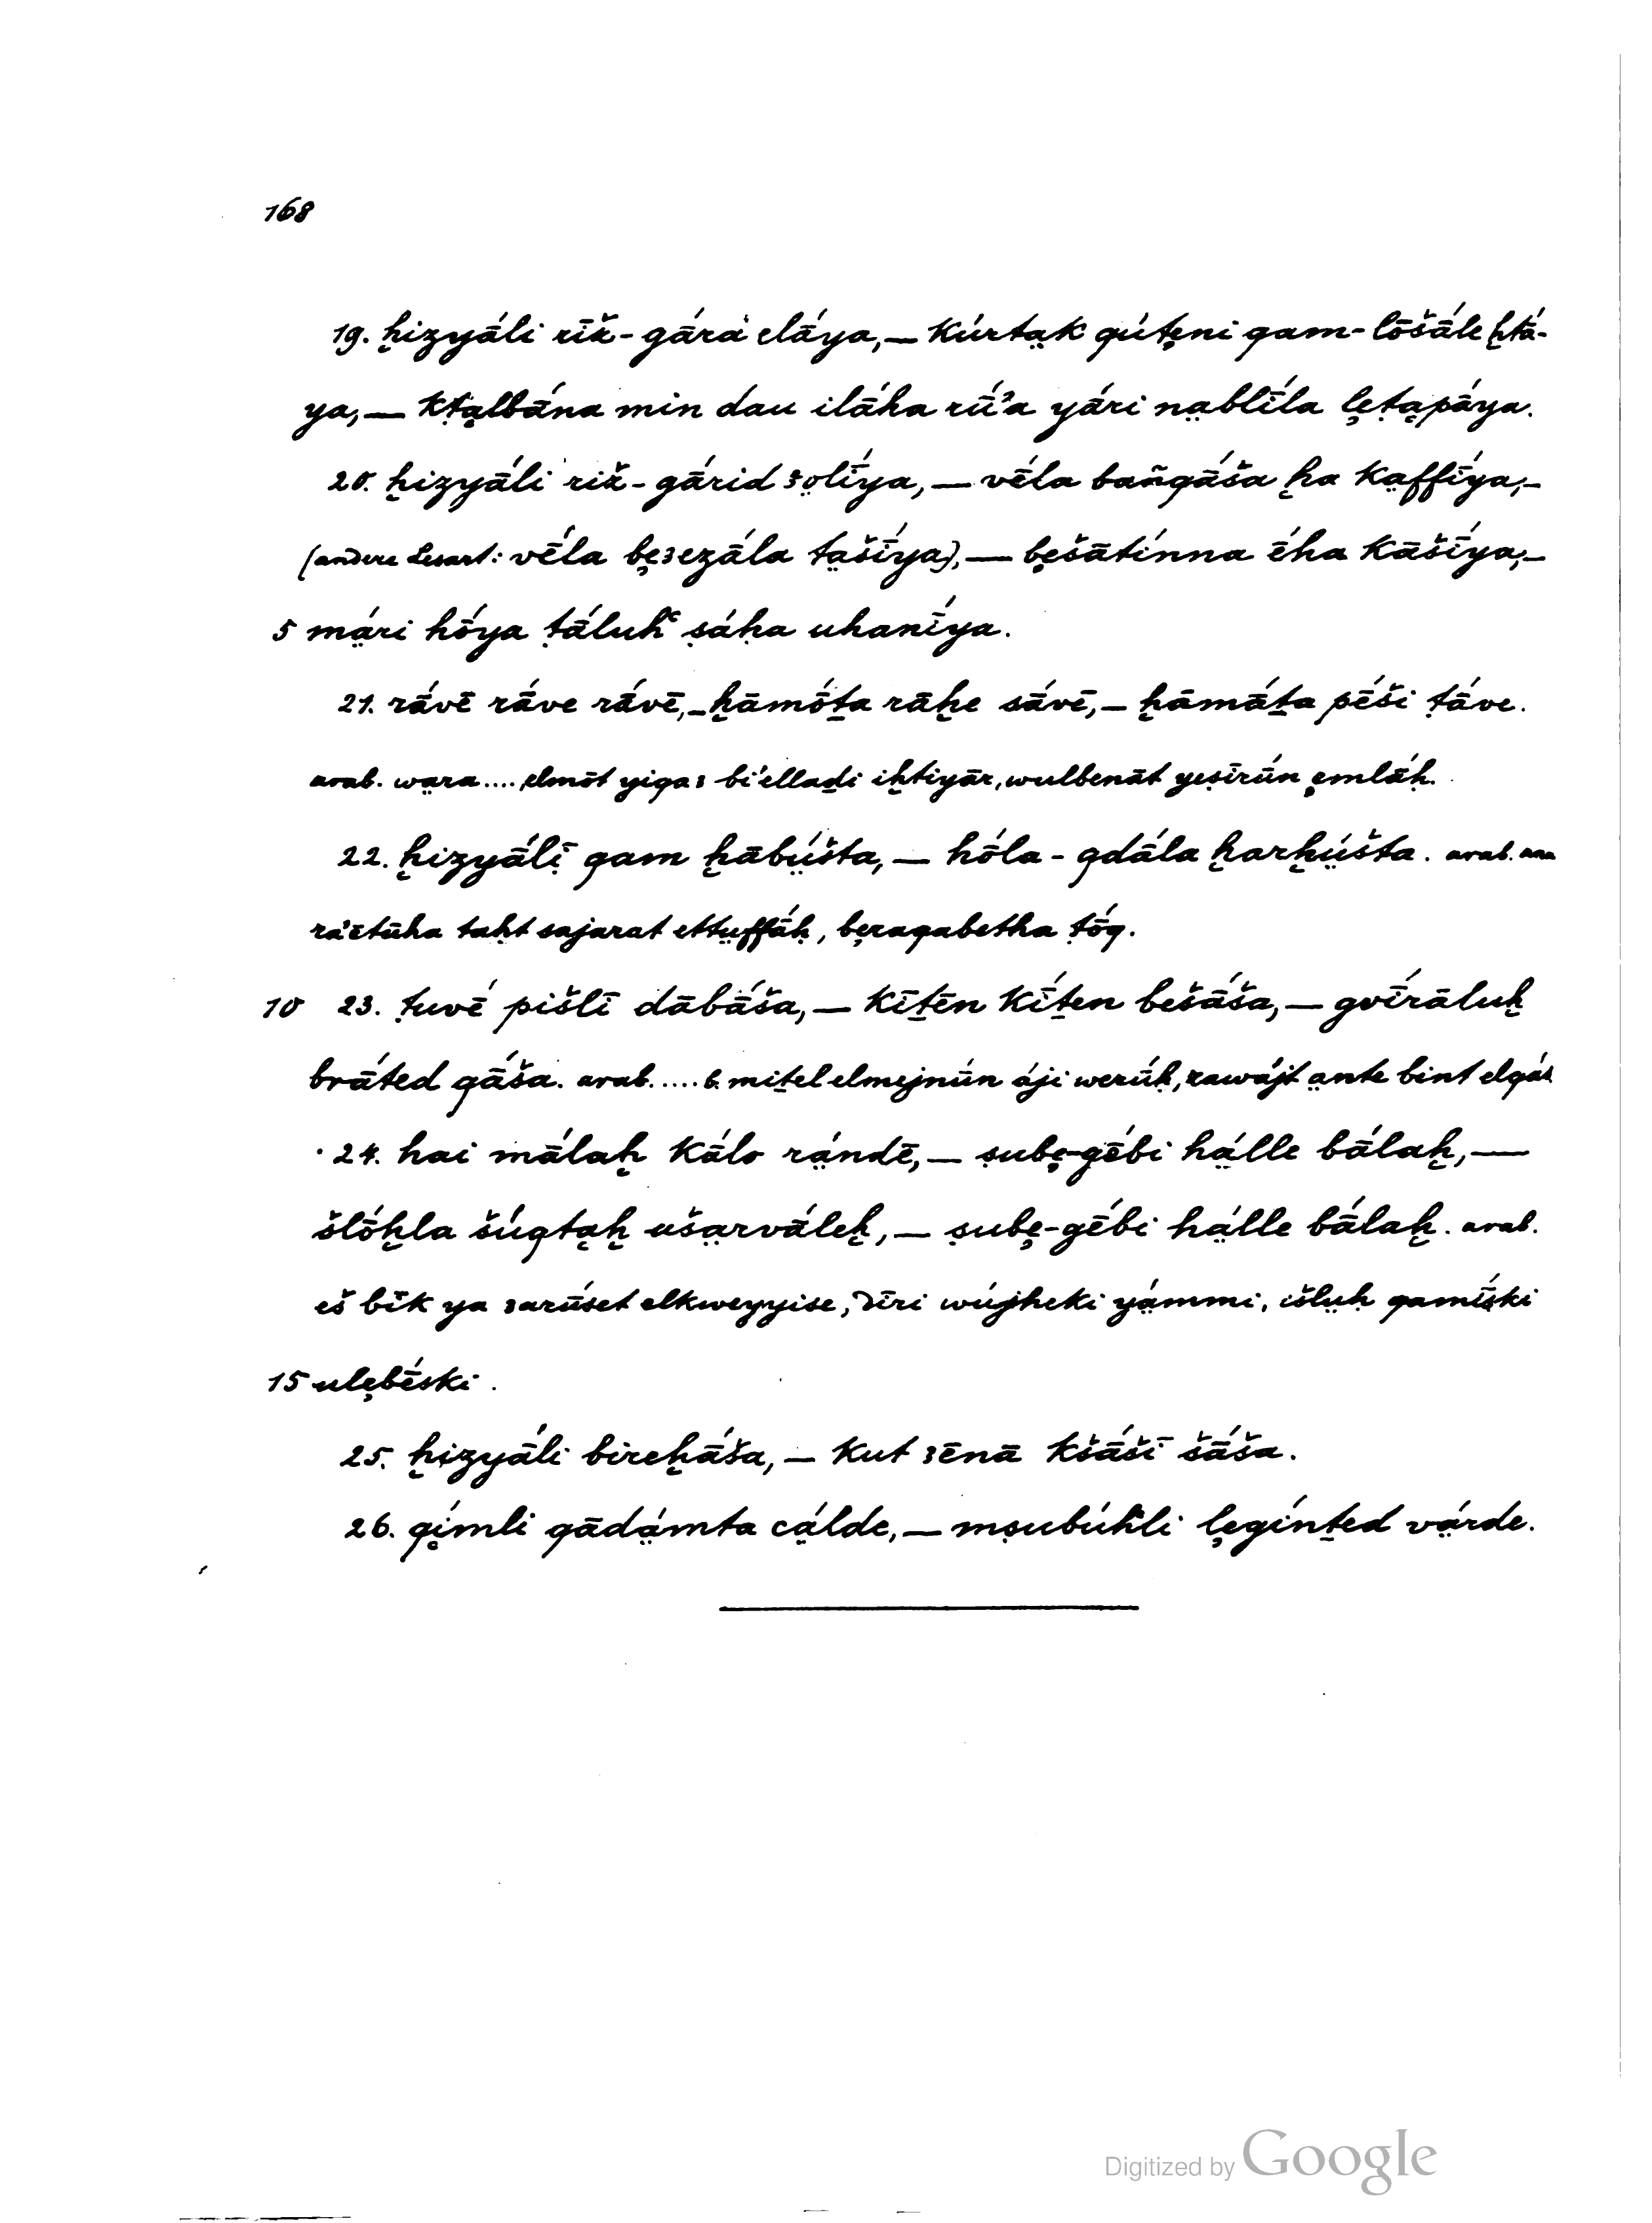 168
19. ḫizyā́li rīž-gā́rá elā́ya, — kúrtạk qúṭẹni qam-lōšā́le ḫtā́-
ya, — kṭạlbā́na min dau ilā́ha rū́ʾa yā́ri nạblī́la lẹṭạpā́ya.
20. ḫizyā́li riž-gā́rid ʒolī́ya, — vḗla bañqā́ša ḫa kạffī́ya, —
(andere Lesart: vḗla bẹʒezā́la tạšī́ya), — bẹšātínna ḗha kāšī́ya, —
5 mạ́ri hṓya ṭā́luḫ ṣáḥa uhanī́ya.
21. rā́vē rā́ve rā́vē, — ḫāmṓṯa rāḫe sā́vē, — ḫāmā́ṯa pḗši ṭā́ve.
arab. wạra .... elmōt yiqaʒ bi'ellaḏi iḫtiyār, wulbenāt yeṣīrūn ẹmlāḥ.
22. ḫizyā́lī qam ḫābụ́šta, — hṓla-qdā́la ḫarḫụ́šta. arab. ana
ra'ētūha taḥt sajarat ettụffā́ḥ, bẹraqabetha ṭṓq.
10 23. ṭuvḗ pišlī dābā́ša, — kīṯēn kī́ṯen bešā́ša, — gvīrāluḫ
brā́ted qā́ša. arab. .... b. miṯel elmejnūn áji werūḥ, rawájt ạnte bint elqás
24. hai mā́laḫ kā́lo rạ́ndē, — ṣubẹ-gḗbi hạ́lle bā́laḫ, —
šlṓḫla šúqtạḫ ušạrvā́leḫ, — ṣubẹ-gḗbi hạ́lle bā́laḫ. arab.
eš bīk ya ʒarū́set elkweyyise, dīri wújheki yạ́mmi, išlụḥ qamī́ṣki
15 ulẹbḗski.
25. ḫizyā́li bireḫā́ša, — kut ʒēnā kšā́šī šā́ša.
26. qímli qādạ́mta cạ́lde, — mṣubúḥli lẹgínṯed vạ́rde.
Digitized by Google